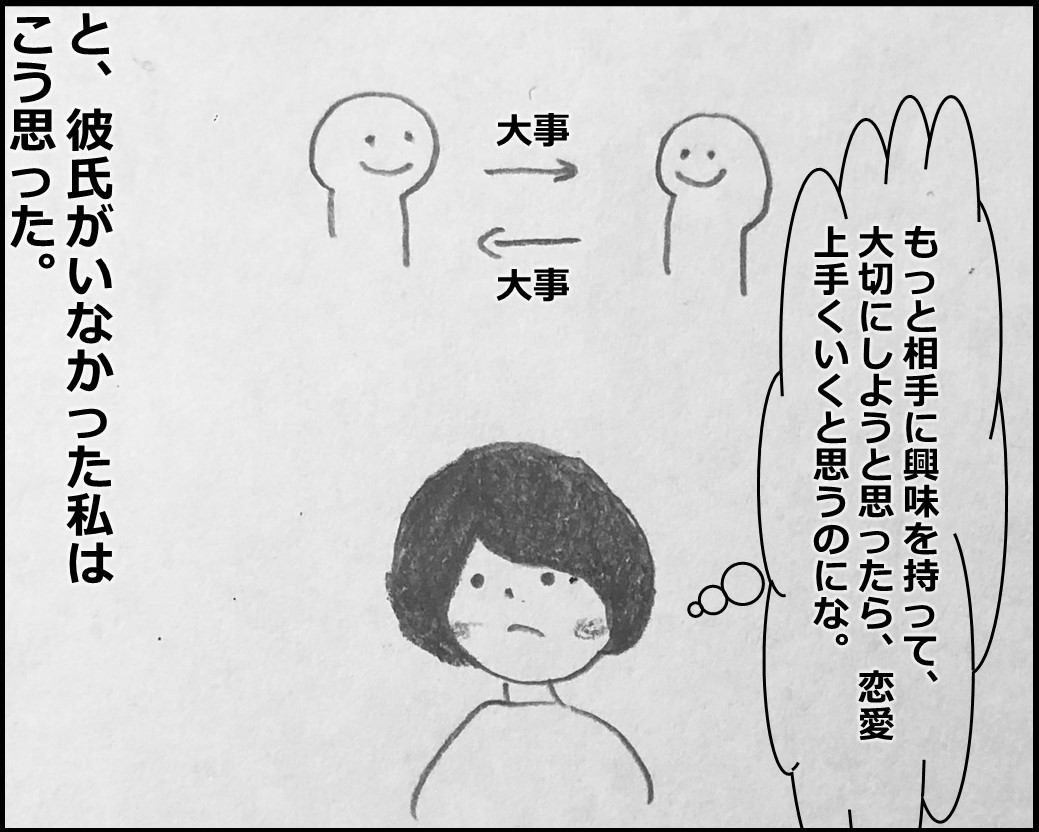 もっと相手に興味を持って、
大切にしようと思ったら、恋愛
上手くいくと思うのにな。
大事
大事
と、彼氏がいなかった私は
こう思った。